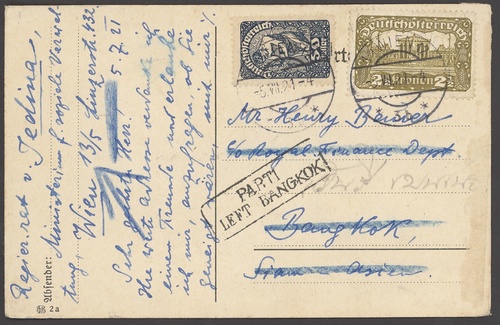 Regier.rat v. Jedina,
Ministerium f. soziale Verwal-
tung, Wien 13/5 Linzerstr. 432
5.7.21
Sehr geehrter Herr.
Ihre werte Adresse verdanke ich
einem Freunde und erlaube
ich mir, anzufragen, ob Sie
geneigt wären, mit mir
Absender:
2a
Deutschösterreich
80
Deutschösterreich
2 Kronen 2
-5.VII.21-4
Mr. Henry
c/o Royal Finance Dept.
PARTI
LEFT BANGKOK!
Bangkok,
Siam Asien.